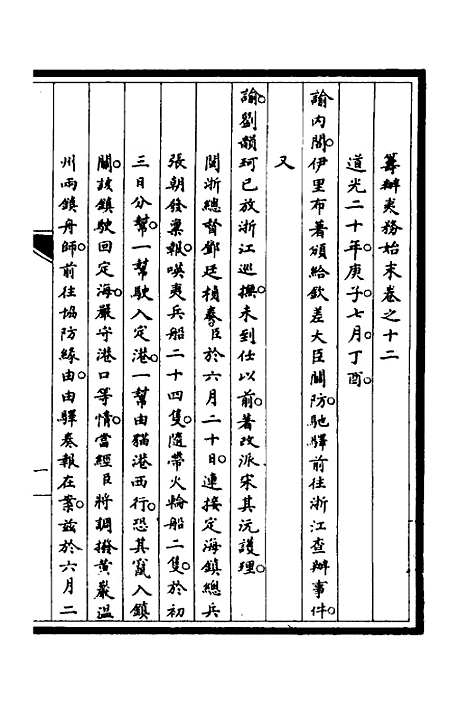 籌辦夷務始末卷之十二
道光二十年庚子七月丁酉。
諭內閣。伊里布著頒給欽差大臣關防。馳驛前往浙江查辦事件。
又
諭。劉韻珂已放浙江巡撫。未到任以前。著改派宋其沅護理。
閩浙總督鄧廷楨奏臣於六月二十日。連接定海鎮總兵
張朝發稟報。㗸夷兵船二十四隻。隨帶火輪船二隻。於初
三日分幫。一幫駛入定港。一幫由貓港西行。恐其竄入鎮
關。該鎮駛回定海。嚴守港口等情。當經臣將調撥黃巖溫
州兩鎮舟師。前往協防緣由。由驛奏報在案。茲於六月二
一